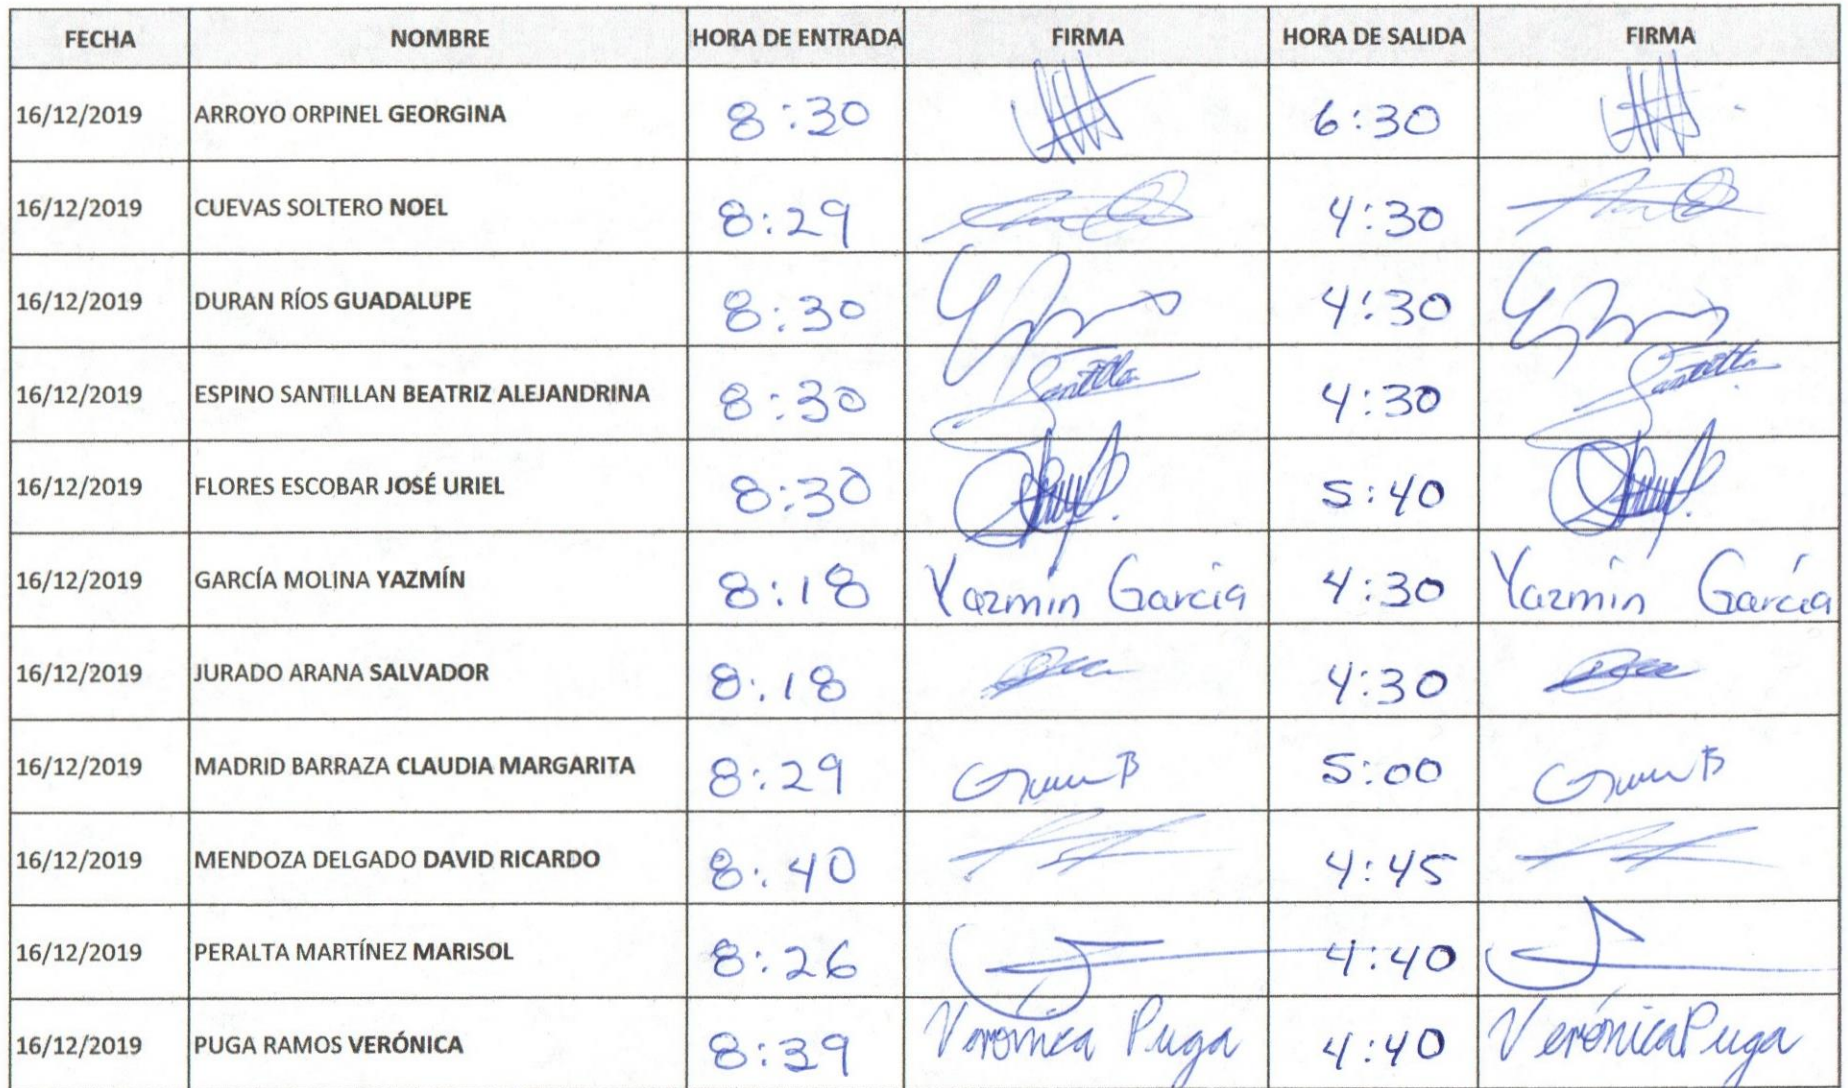 FECHA NOMBRE HORA DE ENTRADA FIRMA HORA DE SALIDA FIRMA
16/12/2019 ARROYO ORPINEL GEORGINA 8:30 6:30
16/12/2019 CUEVAS SOLTERO NOEL 8:29 4:30
16/12/2019 DURAN RÍOS GUADALUPE 8:30 4:30
16/12/2019 ESPINO SANTILLAN BEATRIZ ALEJANDRINA 8:30 4:30
16/12/2019 FLORES ESCOBAR JOSÉ URIEL 8:30 5:40
16/12/2019 GARCÍA MOLINA YAZMÍN 8:18 Yazmin Garcia 4:30 Yazmin García
16/12/2019 JURADO ARANA SALVADOR 8:18 4:30
16/12/2019 MADRID BARRAZA CLAUDIA MARGARITA 8:29 5:00
16/12/2019 MENDOZA DELGADO DAVID RICARDO 8:40 4:45
16/12/2019 PERALTA MARTÍNEZ MARISOL 8:26 4:40
16/12/2019 PUGA RAMOS VERÓNICA 8:39 Veronica Puga 4:40 Verónica Puga